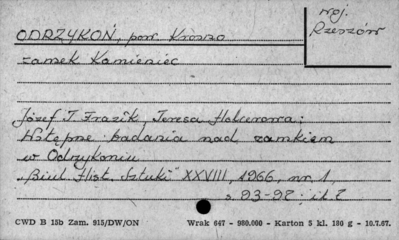 ODRZYKOŃ, pow. Krosno
woj. Rzeszów
zamek Kamieniec
Józef T. Frazik, Teresa Holcerowa:
Wstępne badania nad zamkiem
w Odrzykoniu
"Biul. Hist. Sztuki" XXVIII, 1966, nr 1,
s. 93-97; il. 7
CWD B 15b Zam. 915/DW/ON Wrak 647 - 980.000 - Karton 5 kl. 180 g - 10.7.67.